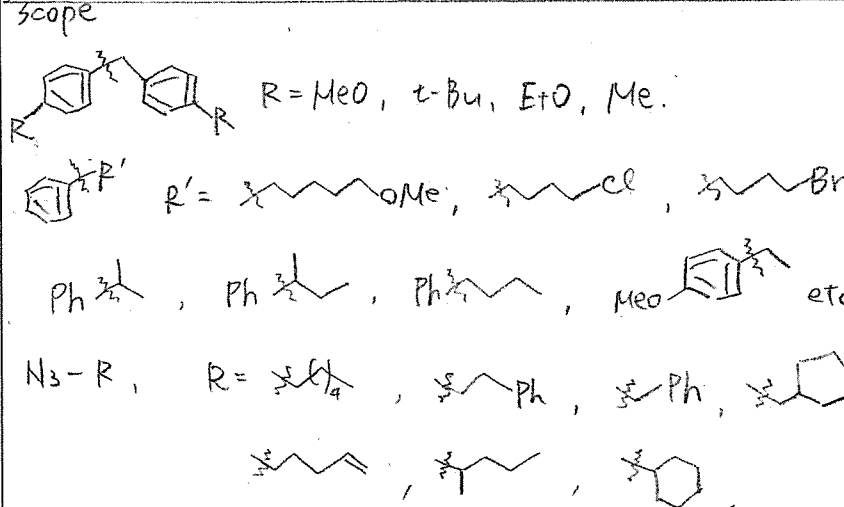 scope
R R R = MeO, t-Bu, EtO, Me.
R' R' = OMe, Cl, Br
Ph , Ph , Ph , MeO etc
N3-R, R= ( )4 , Ph , Ph ,
, ,